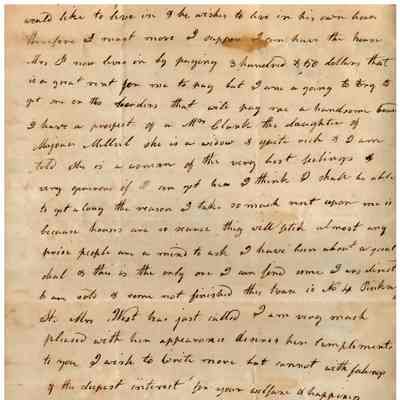 would like to live in & he wishes to live in his own house
therefore I must move I suppose I can have the house
Mrs P now live in by paying 3 hundred & 50 dollars that
is a great rent for me to pay but I am a going to try to
get one or two boarders that will pay me a handsome
I have a prospect of a Mrs Clark the daughter of
Majour she is a widow & quite rich & I am
told she is a woman of the very best feelings &
very generous if I can get her I think I shall be able
to get along the reason I take so much rent upon me is
because houses are so scarce they will fetch almost any
price people are a mind to ask I have been about a great
deal & this is the only one I can find some I was direct
to are sold & some not finished this house is No 4
St. Mrs West has just called I am very much
pleased with her appearance desires her compliments
to you I wish to write more but cannot with feelings
of the deepest interest for your welfare & happiness